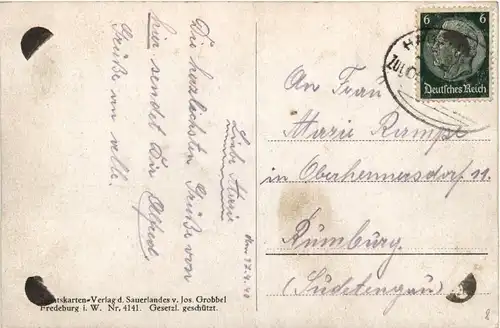 Liebe Marie
Die herzlichsten Grüße von
hier sendet Dir Alfred.
Grüße an alle.
An Frau
Marie Rumpf
in Oberhennersdorf 11.
Rumburg.
(Sudetengau)
6 6
Deutsches Reich
Verlag d. Sauerlandes v. Jos. Grobbel
Fredeburg i. W. Nr. 4141. Gesetzl. geschützt.